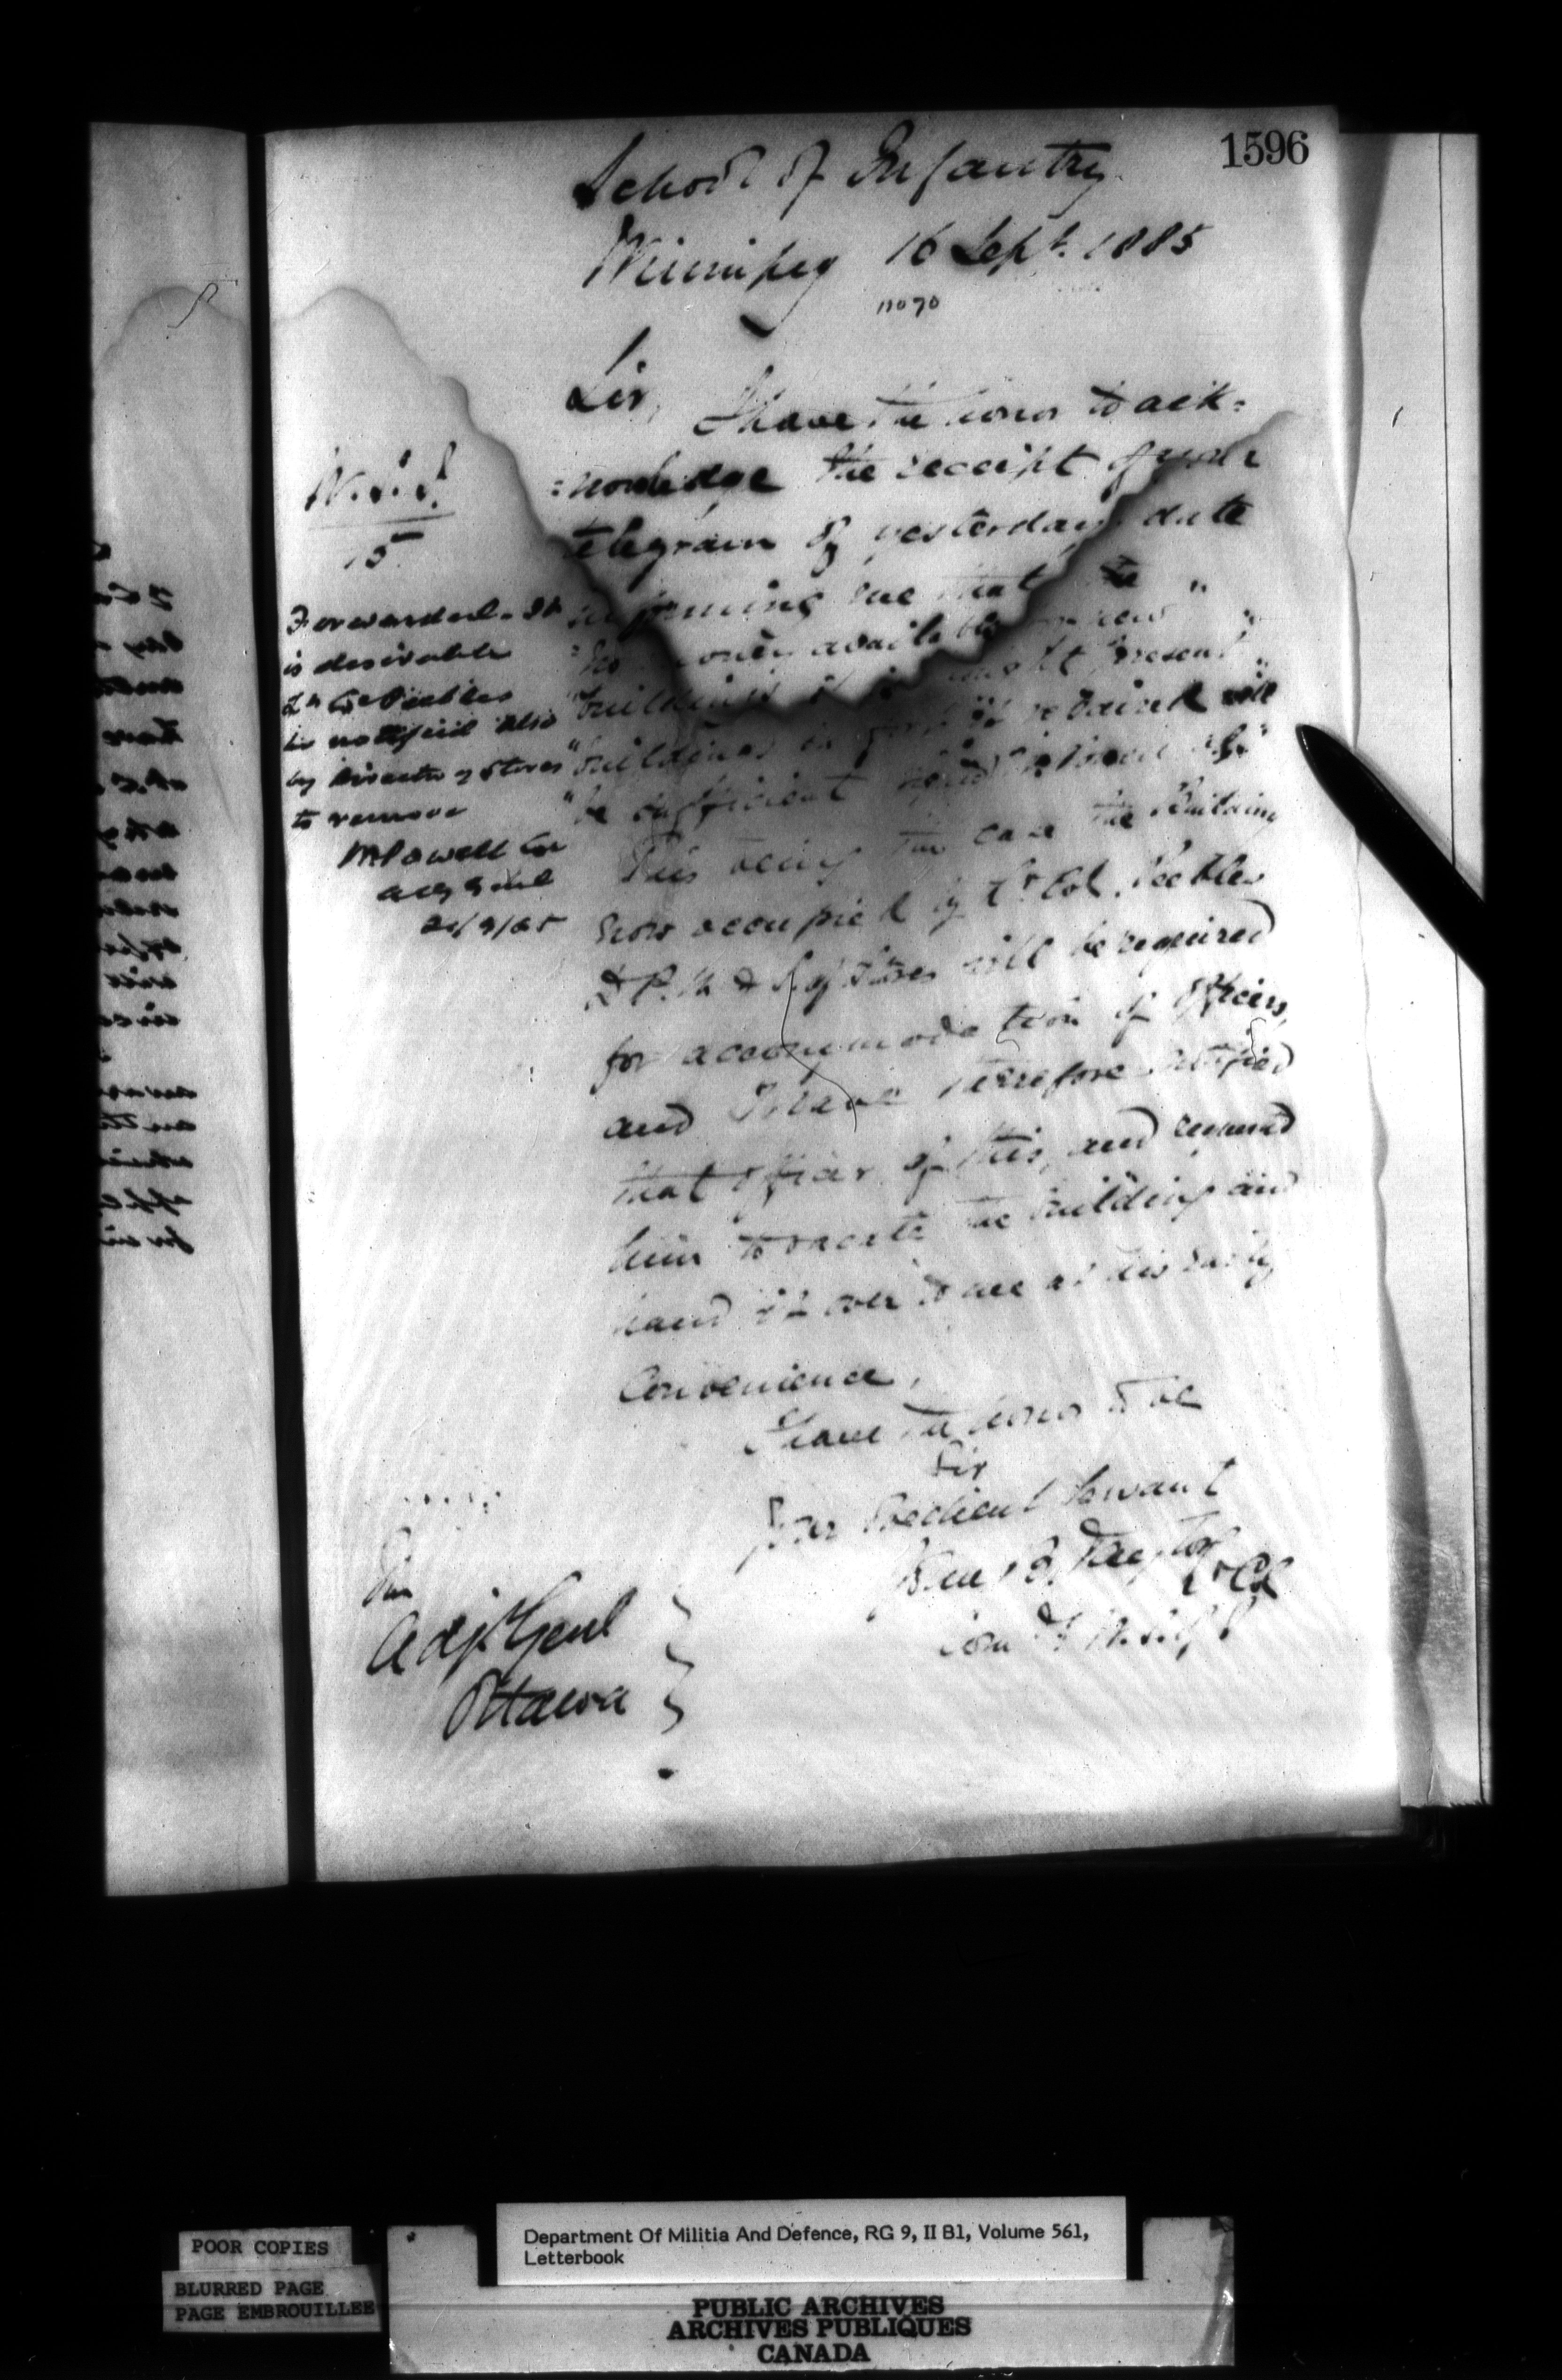 1596
School of Infantry
Winnipeg 16 Sept. 1885
no 70
Sir,
I have the honor to ack=
=nowledge the receipt of your
telegram of yesterdays date
informing me that
"no money available for new "
"buildings present "
"buildings in repaired will
"be sufficient
This being the case the building
now occupied by Lt Col. Peebles
D.P.M & S. of Stores will be required
for accommodation of Officers,
and I have therefore notified
that officer of this, and requested
him to vacate the building and
hand it over to me at his early
Convenience.
I have the honor to be
Sir
Your Obedient Servant
B. Taylor
Lt Col
Comdt
The
Adjt Genl
Ottawa
15
Forwarded. It
is desirable
Lt Col Peebles
be notified also
by Director of Stores
to remove
W Powell Col
Adj Genl
/9/85
Department Of Militia And Defence, RG 9, II B1, Volume 561,
Letterbook
POOR COPIES
BLURRED PAGE
PAGE EMBROUILLEE
PUBLIC ARCHIVES
ARCHIVES PUBLIQUES
CANADA